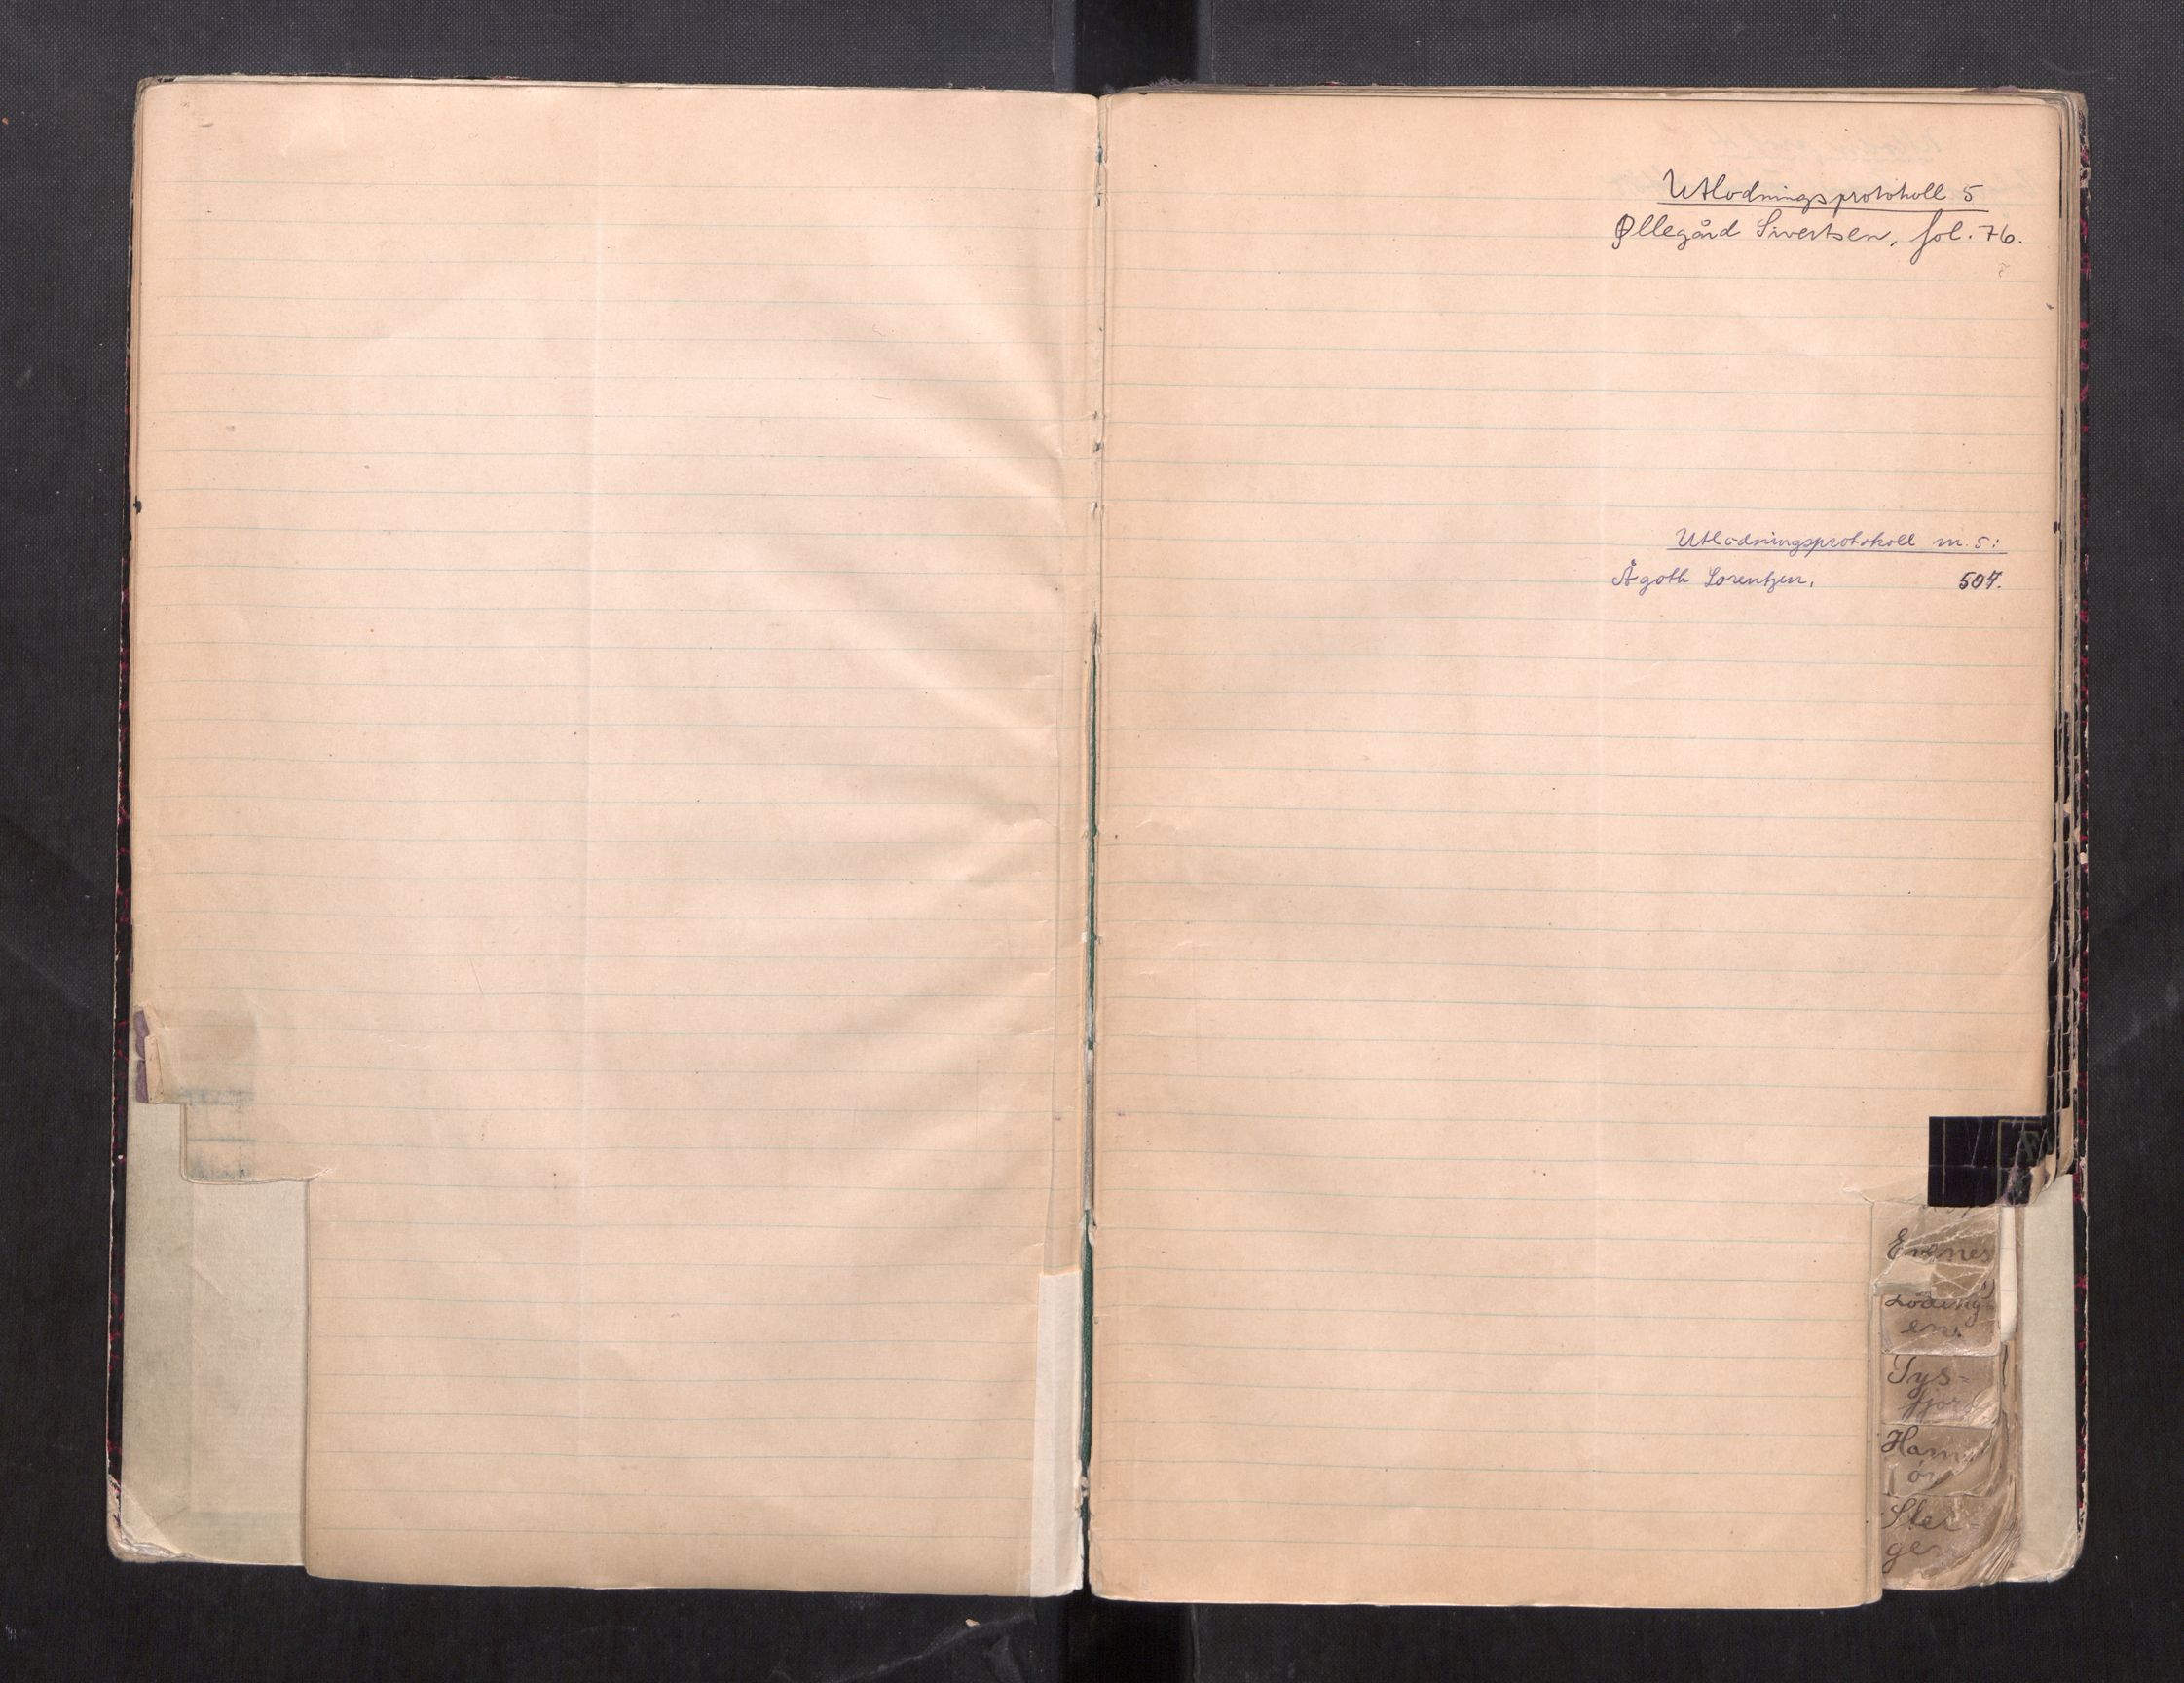 Utlodningsprotokoll 5
Øllegård Sivertsen, fol. 76.
Utlodningsprotokoll nr. 5:
Ågoth Lorentzen, 507.
Æ
Evenes
Löding-
en.
Tys-
fjord
Ham
ör
Stei-
gen